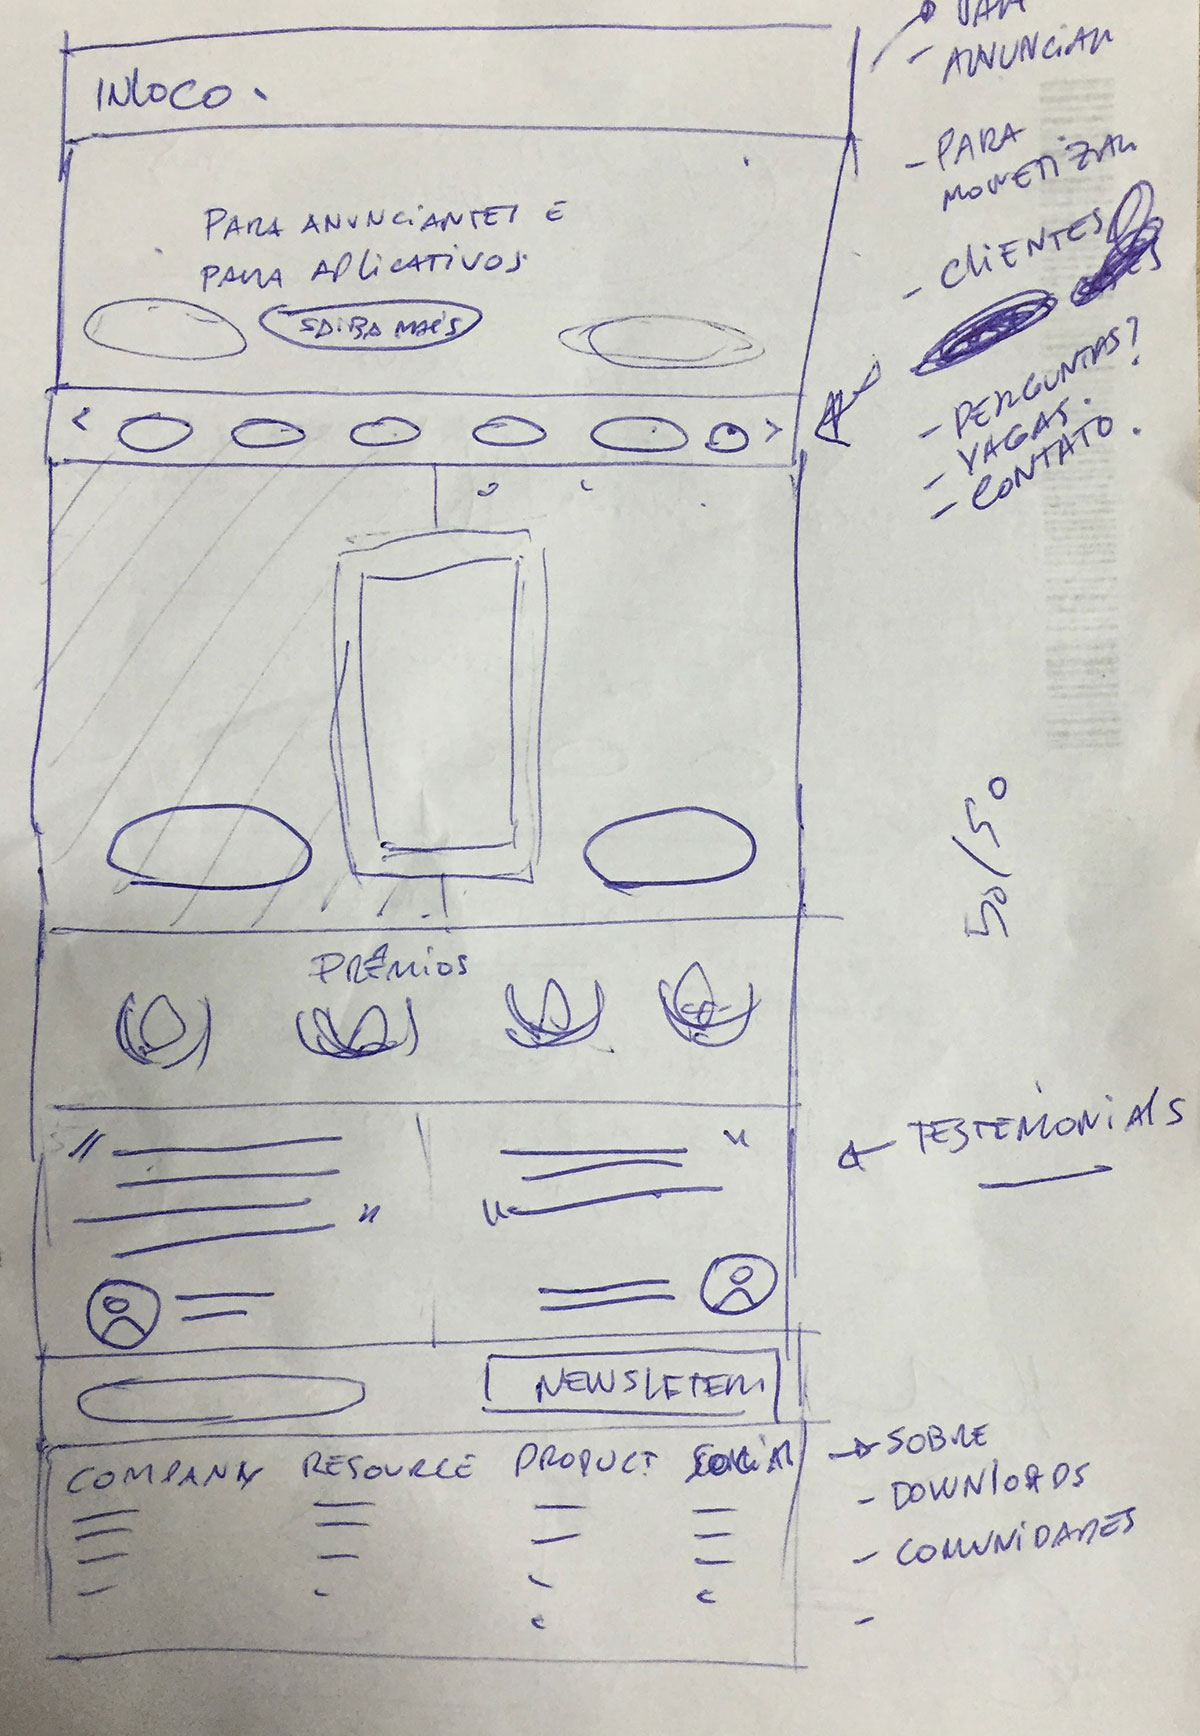 INLOCO.
PARA ANUNCIANTES E
PARA APLICATIVOS
SAIBA MAIS
< >
PRÊMIOS
NEWSLETER
COMPANY RESOURCE PRODUCT SOCIAL
- ANUNCIAR
- PARA
MONETIZAR
- CLIENTES
- PERGUNTAS?
- VAGAS.
- CONTATO.
50/50
← TESTEMONIALS
→ SOBRE
- DOWNLOADS
- COMUNIDADES
-